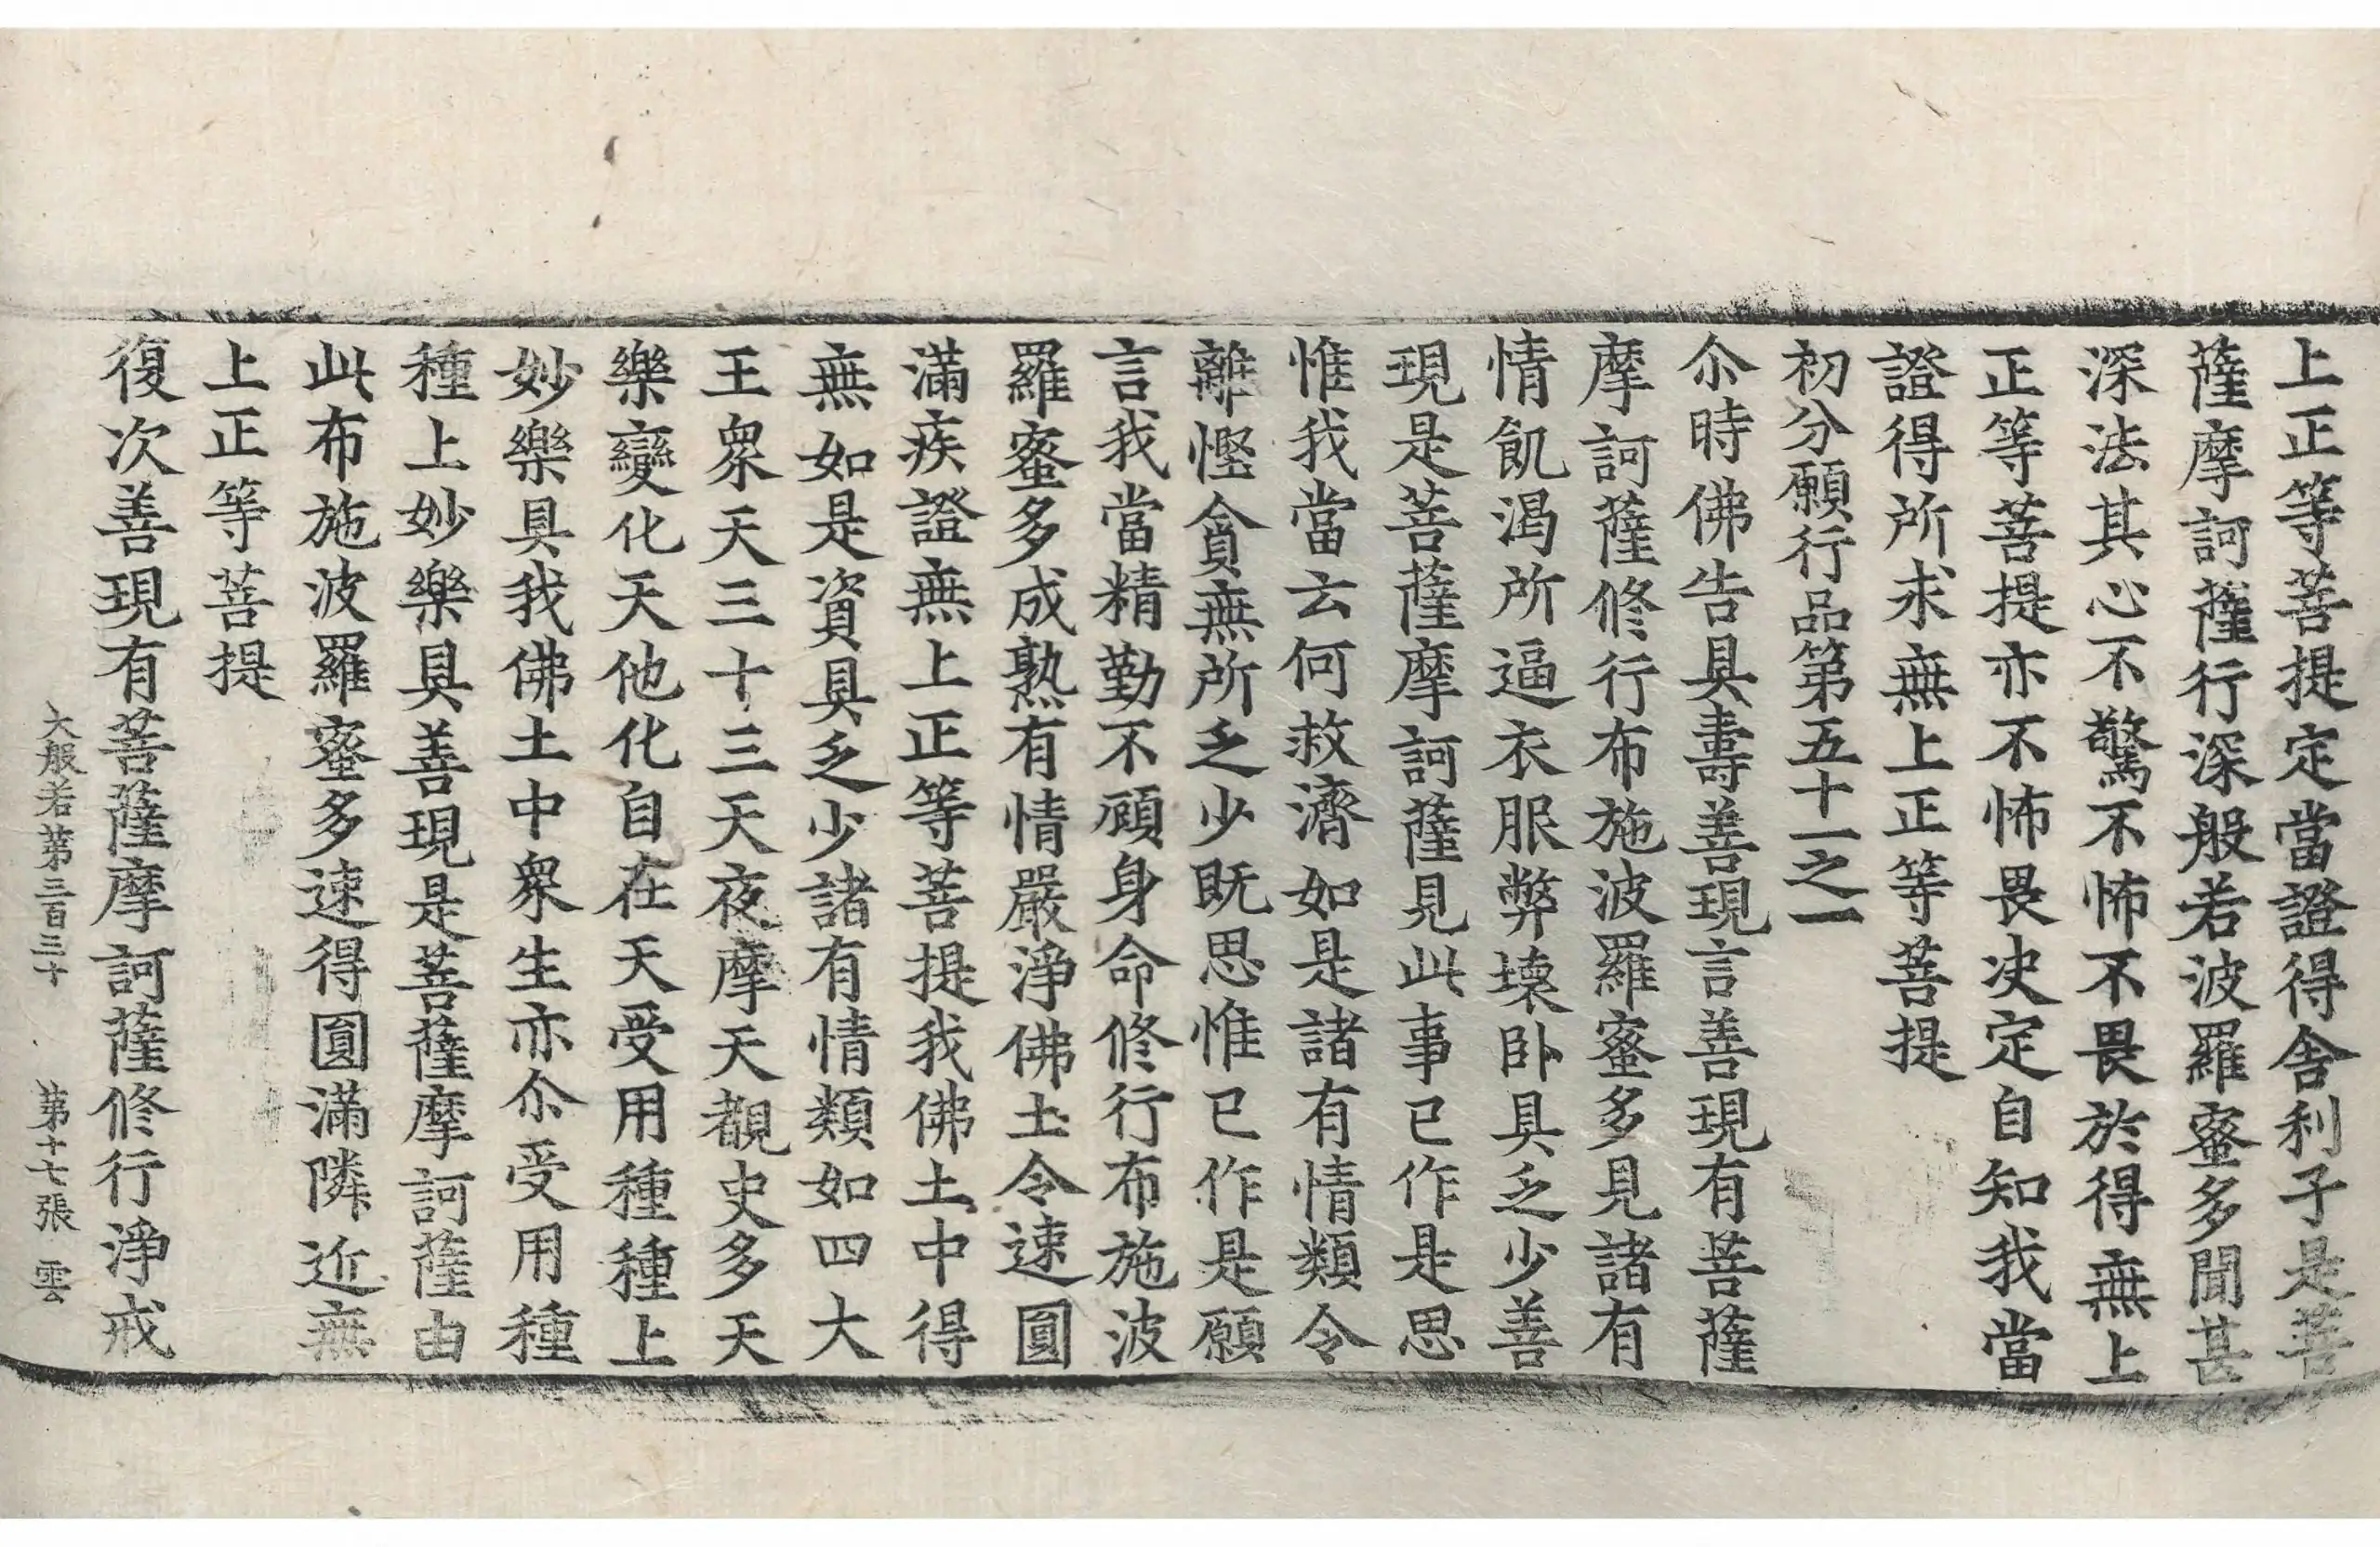 上正等菩提定當證得舍利子是菩
薩摩訶薩行深般若波羅蜜多聞甚
深法其心不驚不怖不畏於得無上
正等菩提亦不怖畏决定自知我當
證得所求無上正等菩提
初分願行品第五十一之一
尒時佛告具壽善現言善現有菩薩
摩訶薩修行布施波羅蜜多見諸有
情飢渴所逼衣服弊壞卧具乏少善
現是菩薩摩訶薩見此事已作是思
惟我當云何救濟如是諸有情類令
離慳貪無所乏少既思惟已作是願
言我當精勤不顧身命修行布施波
羅蜜多成熟有情嚴淨佛土令速圓
滿疾證無上正等菩提我佛土中得
無如是資具乏少諸有情類如四大
王衆天三十三天夜摩天覩史多天
樂變化天他化自在天受用種種上
妙樂具我佛土中衆生亦尒受用種
種上妙樂具善現是菩薩摩訶薩由
此布施波羅蜜多速得圓滿隣近無
上正等菩提
復次善現有菩薩摩訶薩修行淨戒
大般若第三百三十 第十七張 雲